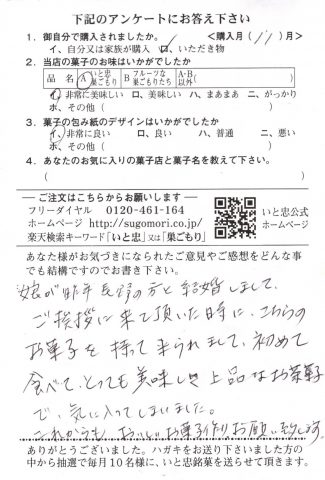 下記のアンケートにお答え下さい
1. 御自分で購入されましたか。 <購入月( 11 )月>
イ、自分又は家族が購入 ロ、いただき物
2. 当店の菓子のお味はいかがでしたか
品 名 A いと忠巣ごもり B フルーツな果実たち A・B以外( )
イ、非常に美味しい ロ、美味しい ハ、まあまあ ニ、がっかり
ホ、その他( )
3. 菓子の包み紙のデザインはいかがでしたか
イ、非常に良い ロ、良い ハ、普通 ニ、悪い
ホ、その他( )
4. あなたのお気に入りの菓子店と菓子名を教えて下さい。
( )
ご注文はこちらからお願いします
フリーダイヤル 0120-461-164
ホームページ http://sugomori.co.jp/
楽天検索キーワード「いと忠」又は「巣ごもり」
いと忠公式
ホームページ
あなた様がお気づきになられたご意見やご感想をどんな事
でも結構ですのでお書き下さい。
娘が昨年長野の方と結婚しまして、
ご挨拶に来て頂いた時に、こちらの
お菓子を持って来られまして、初めて
食べて、とっても美味しい 上品なお菓子
で、気に入ってしまいました。
これからも おいしいお菓子作りお願い致します。
ありがとうございました。ハガキをお送り下さいました方の
中から抽選で毎月10名様に、いと忠銘菓を送らせて頂きます。